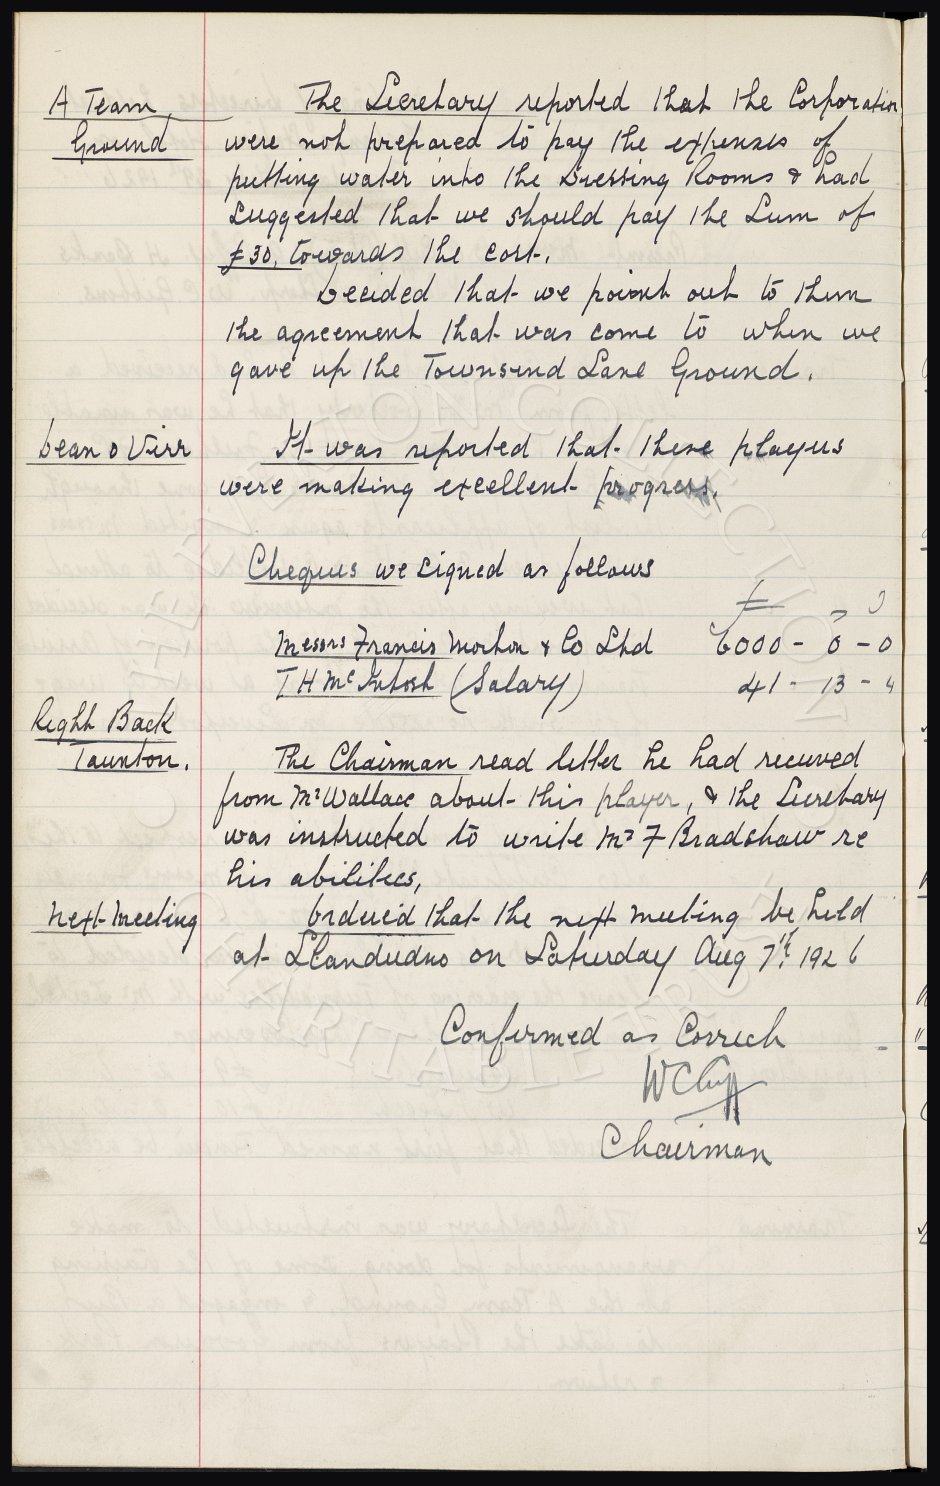 A Team
Ground
The Secretary reported that the Corporation
were not prepared to pay the expenses of
putting water into the Dressing Rooms & had
suggested that we should pay the Sum of
£30, towards the cost.
Decided that we point out to them
the agreement that was come to when we
gave up the Townsend Lane Ground.
Dean & Virr
It was reported that these players
were making excellent progress.
Cheques we signed as follows
£
Messrs Francis Morton & Co Ltd 6000 - 0 - 0
T H McIntosh (Salary) 41 - 13 - 4
Right Back
Taunton.
The Chairman read letter he had received
from Mr Wallace about this player, & the Secretary
was instructed to write Mr F Bradshaw re
his abilities,
Next Meeting
Ordered that the next meeting be held
at Llandudno on Saturday Aug 7th. 1926
Confirmed as Correct
W C Cuff
Chairman
EVERTON COLLECTION
CHARITABLE TRUST